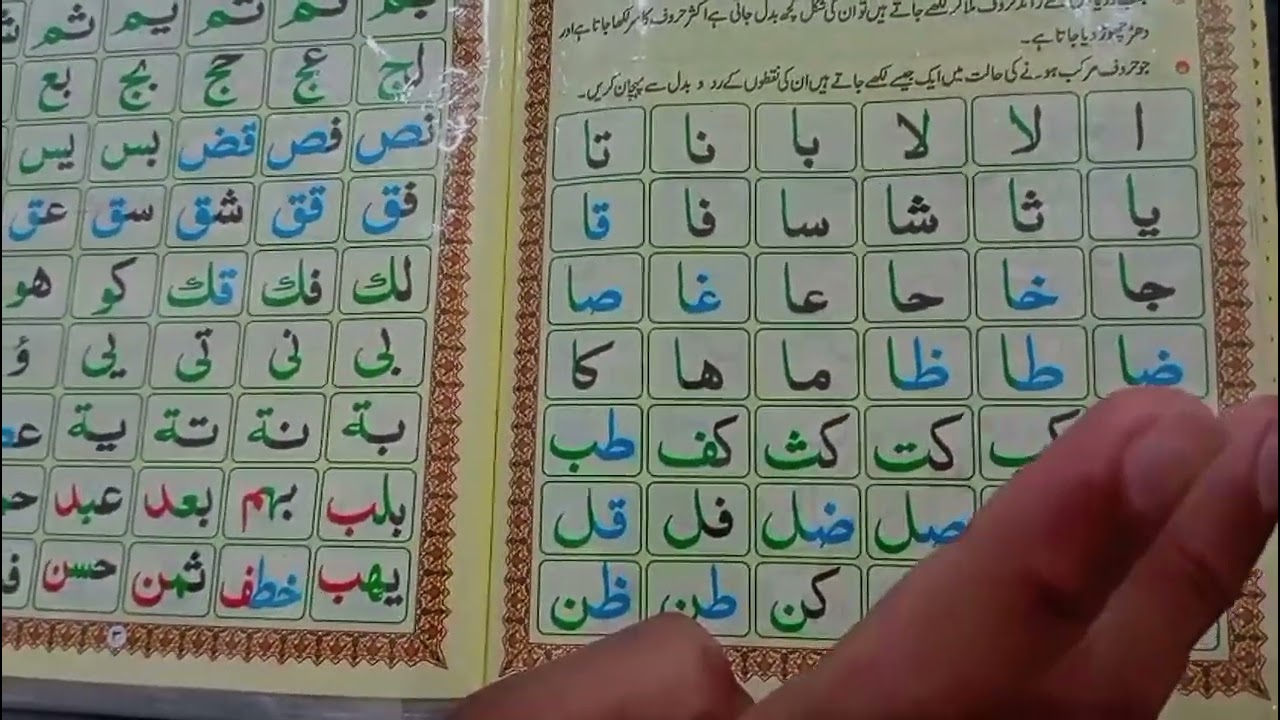 حروف ملا کر لکھے جاتے ہیں تو ان کی شکل کچھ بدل جاتی ہے اکثر حروف کا سر لکھا جاتا ہے اور
دھڑ چھوڑ دیا جاتا ہے۔
جو حروف مرکب ہونے کی حالت میں ایک جیسے لکھے جاتے ہیں ان کی نقطوں کے رد و بدل سے پہچان کریں۔
ا لا لا با نا تا
يا ثا شا سا فا قا
جا خا حا عا غا صا
ضا طا ظا ما ها كا
كت كث كف طب
صل ضل فل قل
كن طن ظن
ثم يم
لج عج حج بج بع
نص فص قض بس يس
فق قق شق سق عق
لك فك قك كو هو
بى نى تى يى ؤ
بة نة تة ية
بلب بهم بعد عبد
يهب خطف ثمن حسن
۳